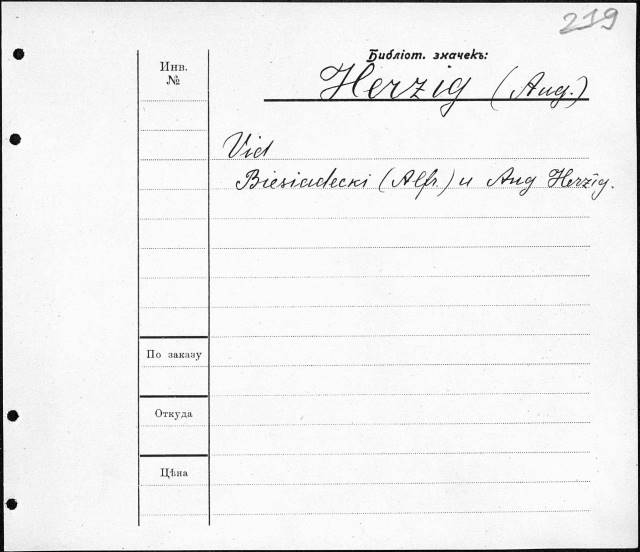 219
Библіот. значекъ:
Инв.
№
Herzig (Aug.)
Vid
Biesiadecki (Alfr.) и Aug Herzig.
По заказу
Откуда
Цѣна